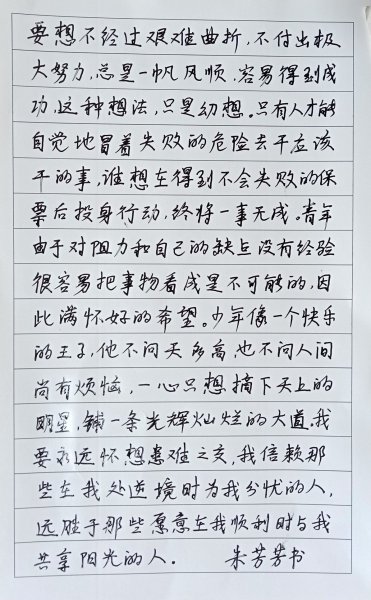 要想不经过艰难曲折，不付出极
大努力，总是一帆风顺，容易得到成
功，这种想法，只是幻想。只有人才能
自觉地冒着失败的危险去干应该
干的事，谁想在得到不会失败的保
票后投身行动，终将一事无成。青年
由于对阻力和自己的缺点没有经验
很容易把事物看成是不可能的，因
此满怀好的希望。少年像一个快乐
的王子，他不问天多高，也不问人间
尚有烦恼，一心只想摘下天上的
明星，铺一条光辉灿烂的大道。我
要永远怀想患难之交，我信赖那
些在我处逆境时为我分忧的人，
远胜于那些愿意在我顺利时与我
共享阳光的人. 朱芳芳书